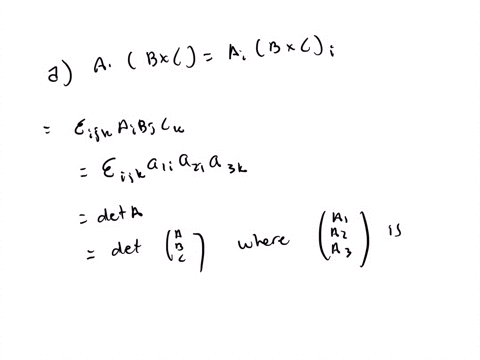 a) A. (B×C) = Aᵢ (B×C)ᵢ
= Ɛᵢⱼₖ Aᵢ Bⱼ Cₖ
= Ɛᵢⱼₖ a₁ᵢ a₂ⱼ a₃ₖ
= det A
= det (A B C) where (A₁ A₂ A₃) is